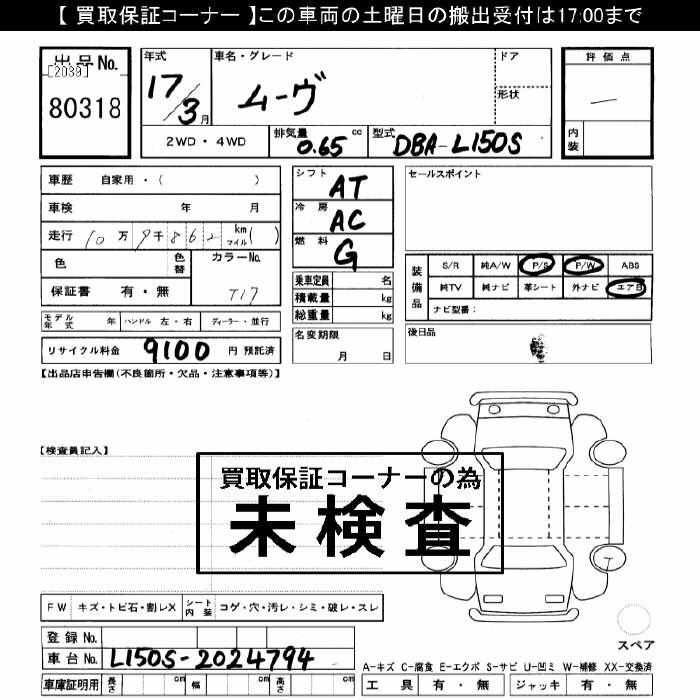 【 買取保証コーナー 】この車両の土曜日の搬出受付は17:00まで
出品No.
[2039]
80318
年式
17/3月
車名・グレード
ムーヴ
ドア
形状
2WD・4WD
排気量
0.65 cc
型式
DBA-L150S
評価点
—
内装
車歴 自家用・( )
車検 年 月
走行 10万9千862 km マイル ( )
色
色替
カラーNo.
T17
保証書 有・無
モデル年式 年
ハンドル 左・右
ディーラー・並行
リサイクル料金 9100 円 預託済
シフト
AT
冷房
AC
燃料
G
乗車定員 名
積載量 kg
総重量 kg
名変期限
月 日
セールスポイント
装備品
S/R 純A/W P/S P/W ABS
純TV 純ナビ 革シート 外ナビ エアB
ナビ型番:
後日品
【出品店申告欄(不良箇所・欠品・注意事項等)】
【検査員記入】
買取保証コーナーの為
未検査
FW キズ・トビ石・割レX
シート内装 コゲ・穴・汚レ・シミ・破レ・スレ
登録No.
車台No. L150S-2024794
車庫証明用 長さ cm 幅 cm 高さ cm
スペア
A-キズ C-腐食 E-エクボ S-サビ U-凹ミ W-補修 XX-交換済
工具 有・無 ジャッキ 有・無